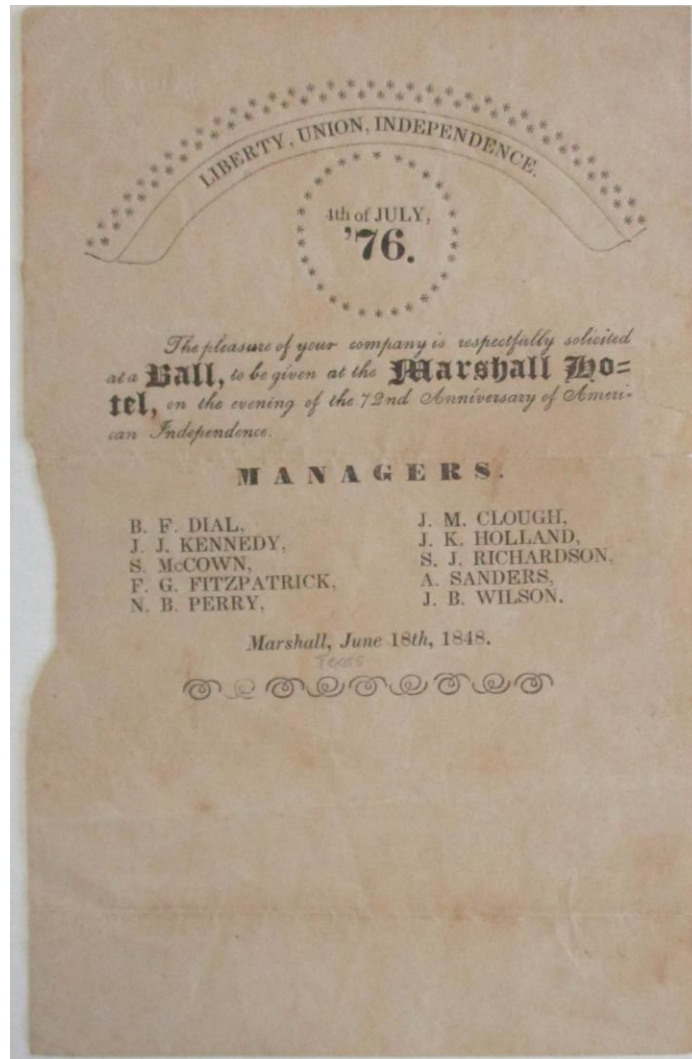 LIBERTY, UNION, INDEPENDENCE.
4th of JULY,
'76.
The pleasure of your company is respectfully solicited
at a Ball, to be given at the Marshall Ho=
tel, on the evening of the 72nd Anniversary of Ameri-
can Independence.
MANAGERS.
B. F. DIAL,
J. J. KENNEDY,
S. McCOWN,
F. G. FITZPATRICK,
N. B. PERRY,
J. M. CLOUGH,
J. K. HOLLAND,
S. J. RICHARDSON,
A. SANDERS,
J. B. WILSON.
Marshall, June 18th, 1848.
Texas